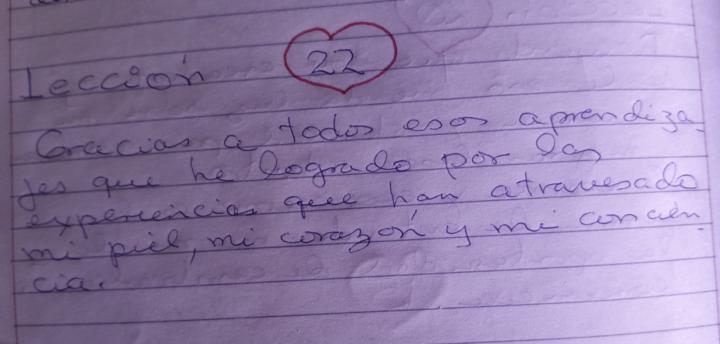 Lección 22
Gracias a todos esos aprendiza-
jes que he logrado por las
experiencias que han atravesado
mi piel, mi corazón y mi concien-
cia.